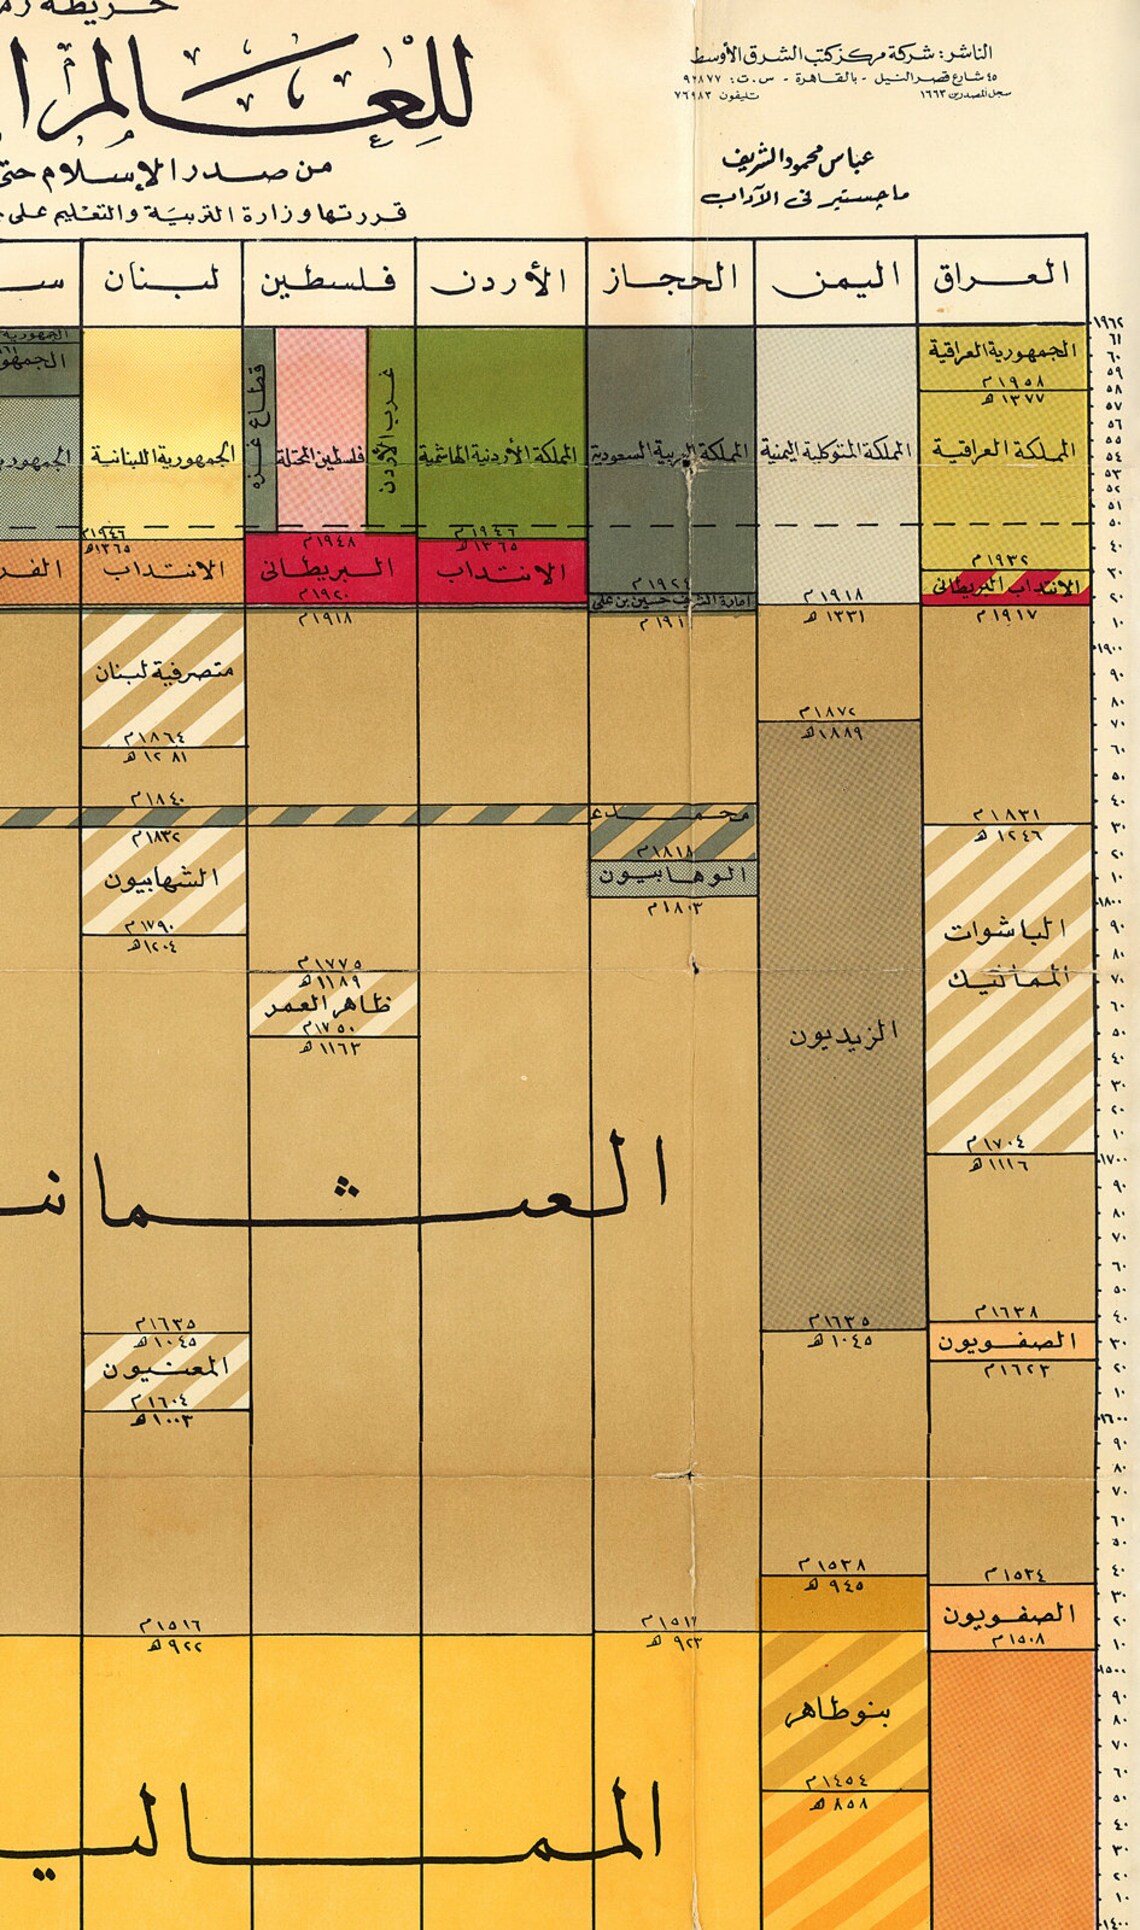 للعالم
من صدر الإسلام حتى
قررتها وزارة التربية والتعليم على
الناشر: شركة مركز كتب الشرق الأوسط
٤٥ شارع قصر النيل - بالقاهرة - س.ت: ٩٢٨٧٧
سجل المصدرين ١٦٦٣ تليفون ٧٦٩٨٣
عباس محمود الشريف
ماجستير فى الآداب
العراق
اليمن
الحجاز
الأردن
فلسطين
لبنان
١٩٦٢
٦١
٦٠
٥٩
٥٨
٥٧
٥٦
٥٥
٥٤
٥٣
٥٢
٥١
٥٠
٤٠
٣٠
٢٠
١٠
١٩٠٠
٩٠
٨٠
٧٠
٦٠
٥٠
٤٠
٣٠
٢٠
١٠
١٨٠٠
٩٠
٨٠
٧٠
٦٠
٥٠
٤٠
٣٠
٢٠
١٠
١٧٠٠
٩٠
٨٠
٧٠
٦٠
٥٠
٤٠
٣٠
٢٠
١٠
١٦٠٠
٩٠
٨٠
٧٠
٦٠
٥٠
٤٠
٣٠
٢٠
١٠
١٥٠٠
٩٠
٨٠
٧٠
٦٠
٥٠
٤٠
٣٠
٢٠
١٠
١٤٠٠
الجمهورية العراقية
١٩٥٨م
١٣٧٧ هـ
المملكة العراقية
١٩٣٢م
الانتداب البريطانى
١٩١٧م
١٨٣١م
١٢٤٦ هـ
الباشوات
المماليك
١٧٠٤م
١١١٦ هـ
١٦٣٨م
الصفويون
١٦٢٣م
١٥٣٤م
الصفويون
١٥٠٨م
المملكة المتوكلية اليمنية
١٩١٨م
١٣٣١ هـ
١٨٧٢م
١٨٨٩هـ
الزيديون
١٦٣٥م
١٠٤٥ هـ
١٥٣٨م
٩٤٥ هـ
بنو طاهر
١٤٥٤م
٨٥٨ هـ
المملكة العربية السعودية
١٩٢٤م
امارة الشريف حسين بن على
محمد ع
١٨١٨م
الوهابيون
١٨٠٣م
١٥١٧م
٩٢٣ هـ
المملكة الأردنية الهاشمية
١٩٤٦م
١٣٦٥ هـ
الانتداب
غرب الأردن
فلسطين المحتلة
قطاع غزة
١٩٤٨م
البريطانى
١٩٢٠م
١٩١٨م
١٧٧٥م
١١٨٩ هـ
ظاهر العمر
١٧٥٠م
١١٦٣ هـ
الجمهورية اللبنانية
١٩٤٦م
١٣٦٥هـ
الانتداب
متصرفية لبنان
١٨٦٤م
١٢٨١ هـ
١٨٤٠م
١٨٣٢م
الشهابيون
١٧٩٠م
١٢٠٤هـ
١٦٣٥م
١٠٤٥ هـ
المعنيون
١٦٠٤م
١٠٠٣ هـ
١٥١٦م
٩٢٢ هـ